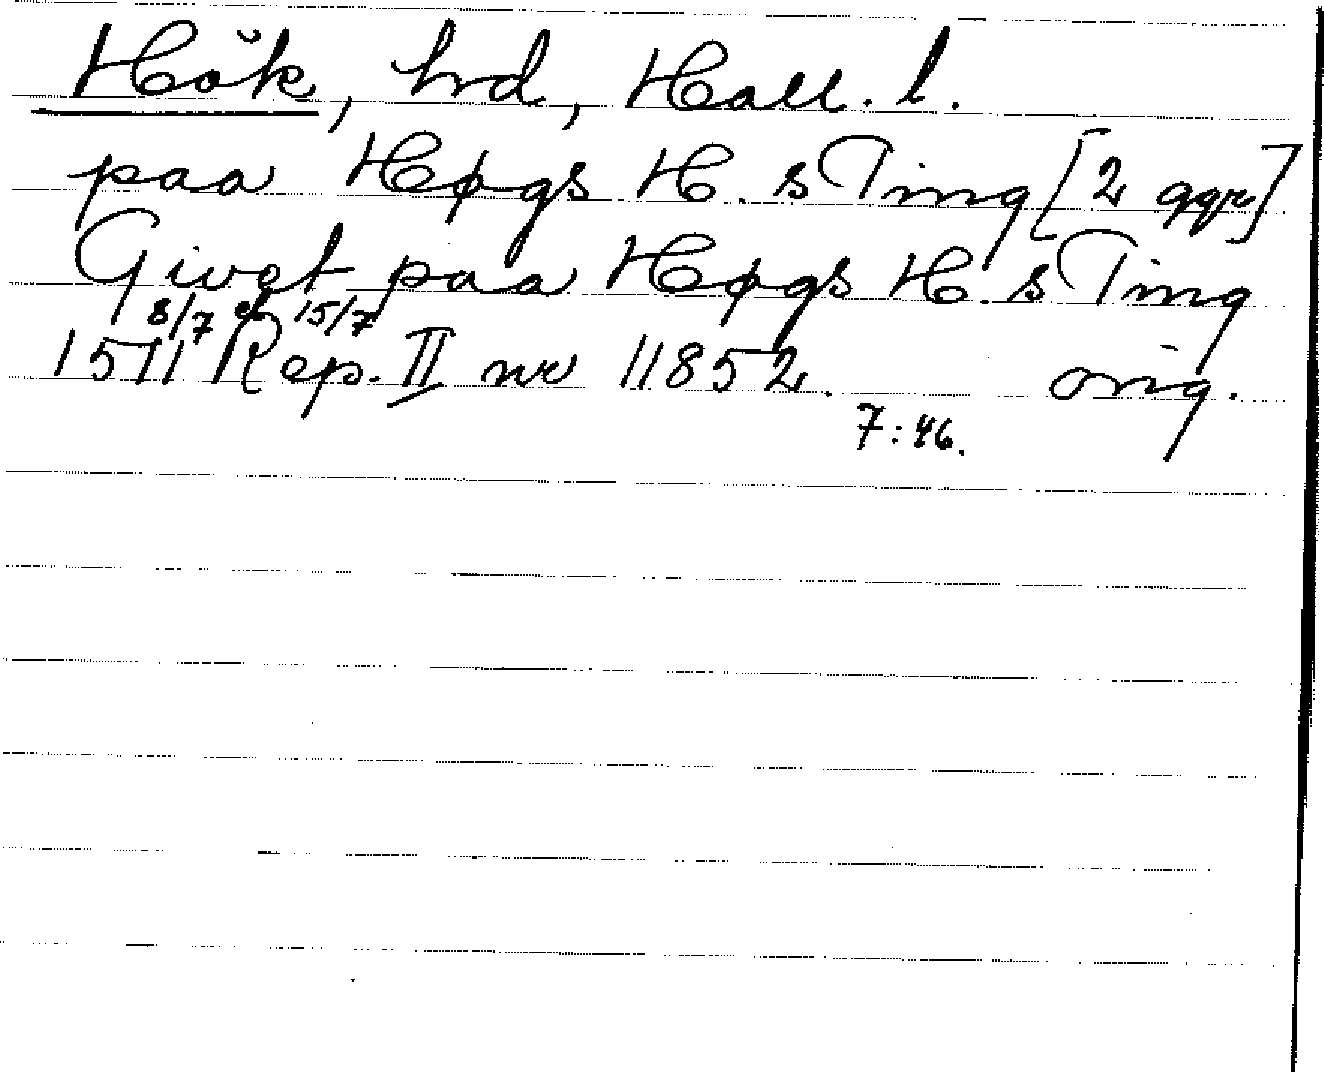 Hök, hrd, Hall. l.
paa Høgs H. s Ting [2 ggr]
Givet paa Høgs H. s Ting
8/7 el. 15/7
1511 Rep. II nr 11852. orig.
7:46.